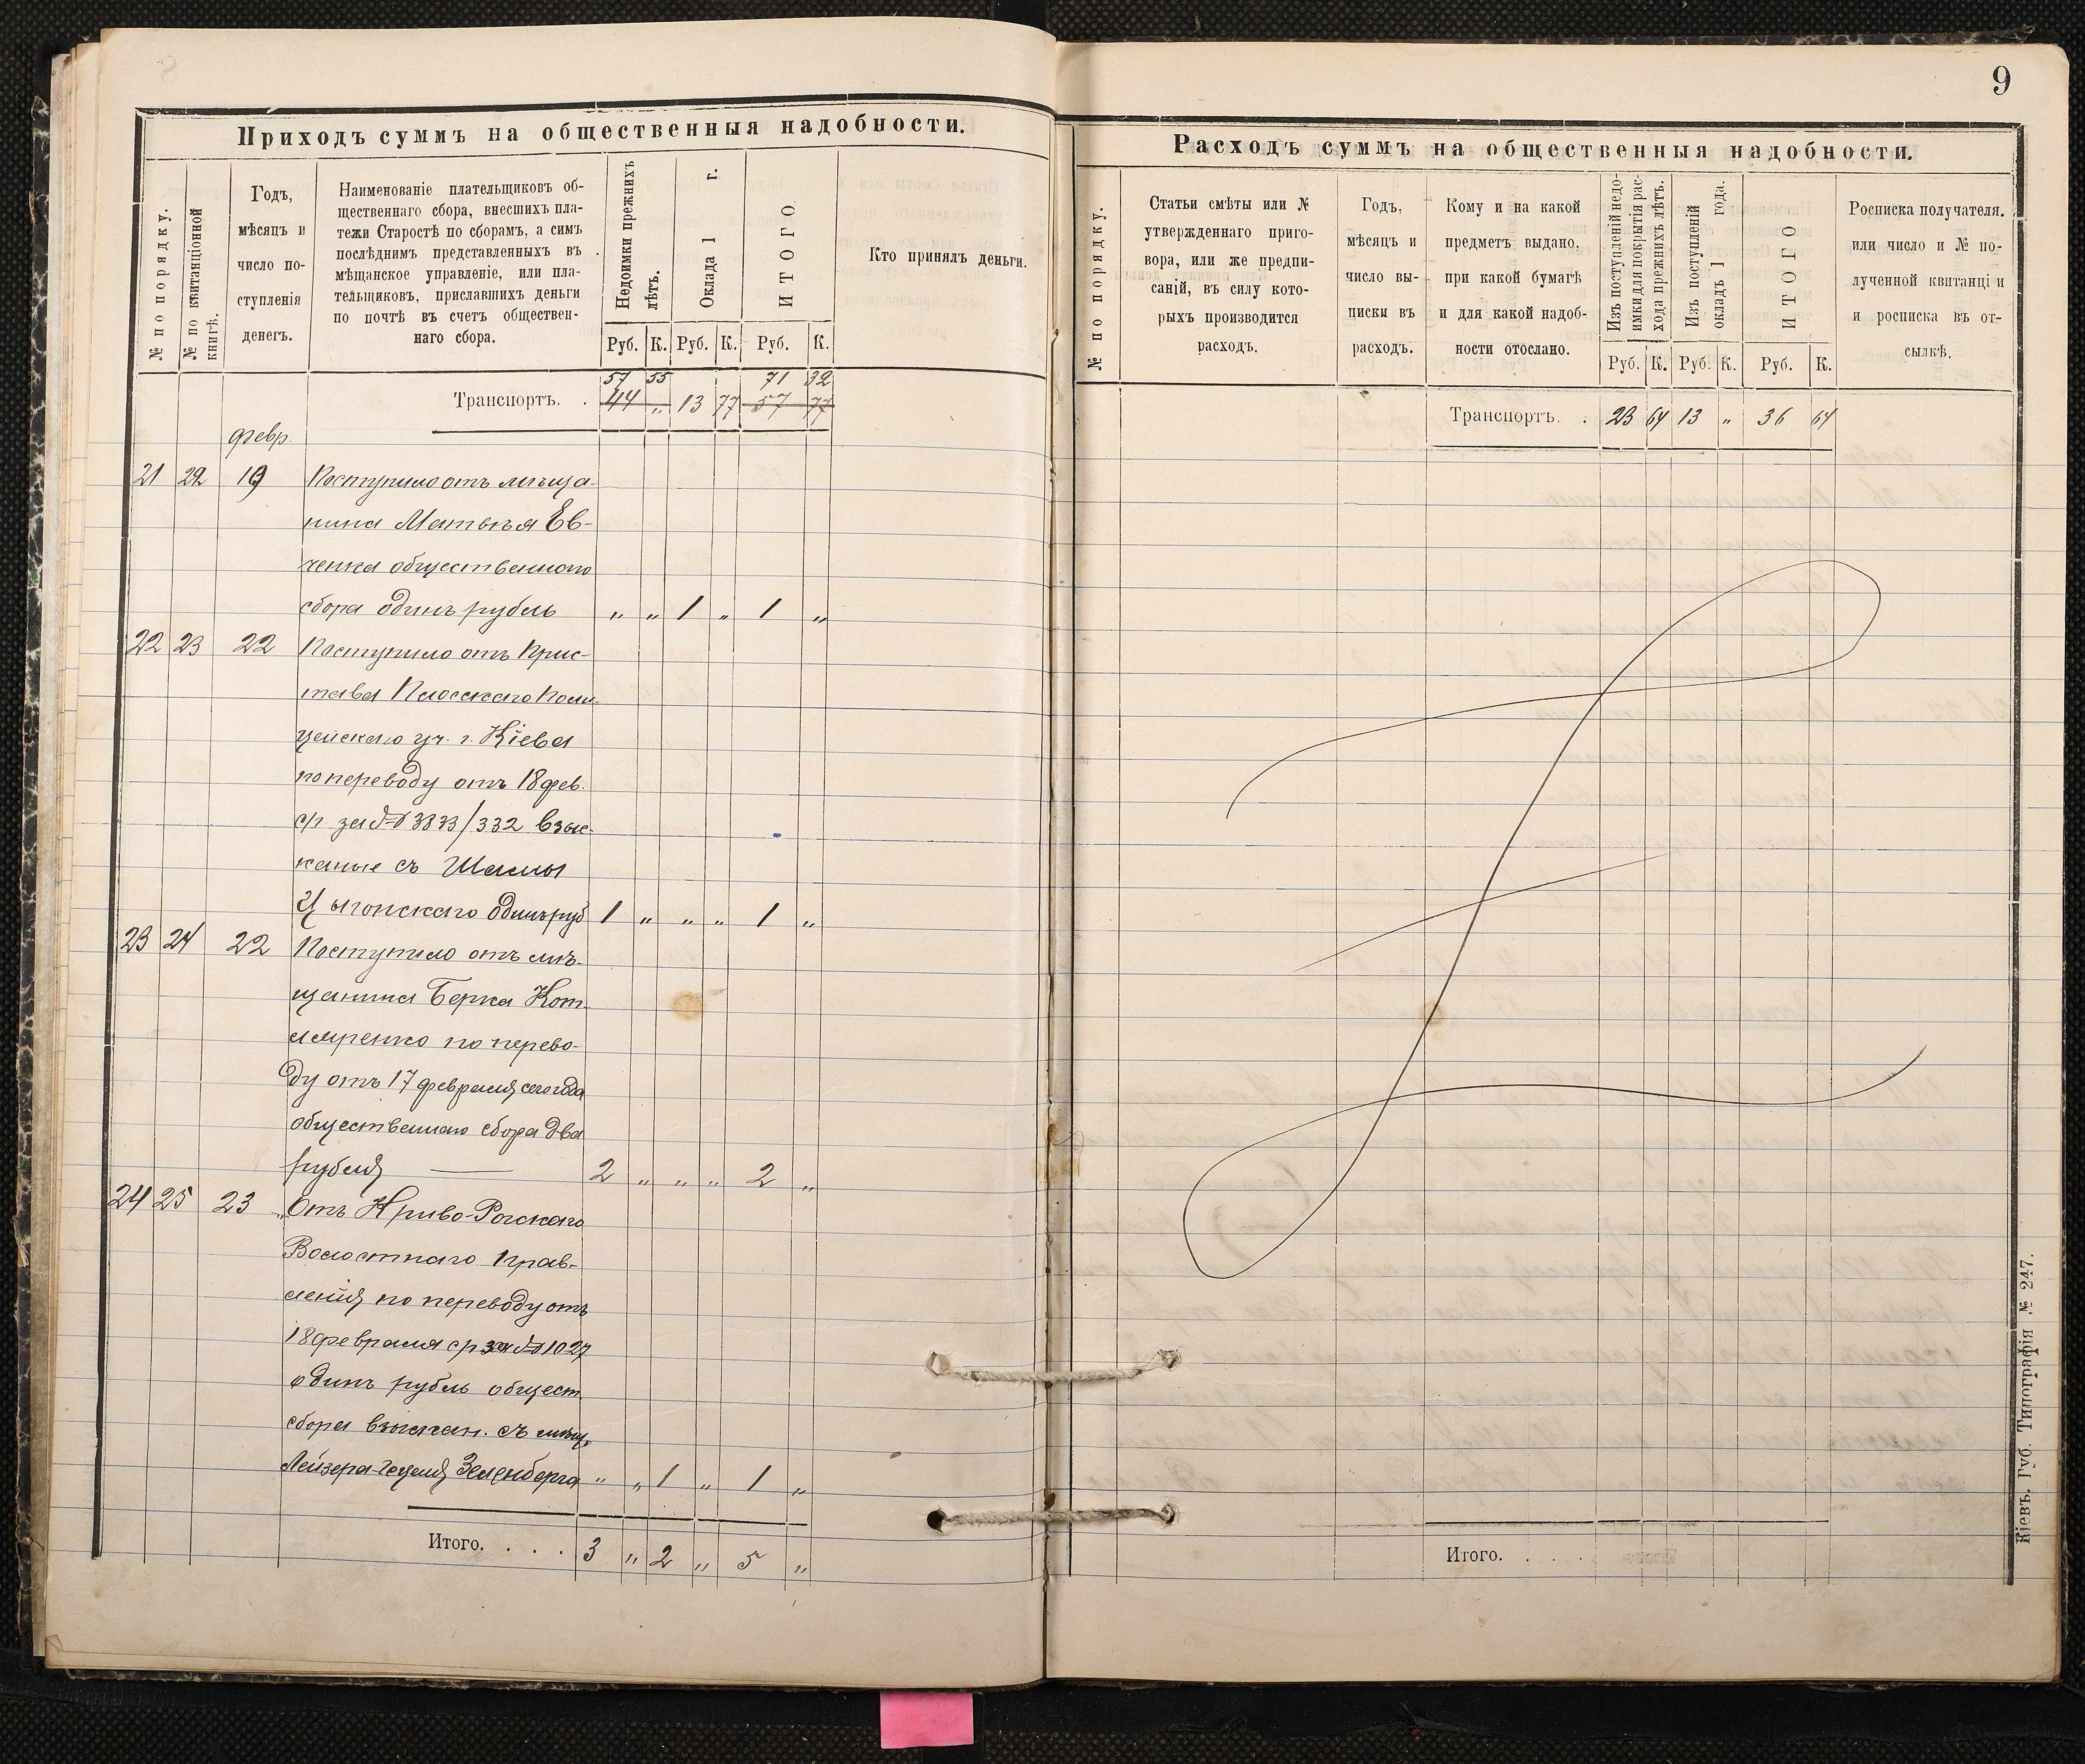 9
Приходъ суммъ на общественныя надобности.
№ по порядку.
№ по квитанціонной
книгѣ.
Годъ,
мѣсяцъ и
число по-
ступленія
денегъ.
Наименованіе плательщиковъ об-
щественнаго сбора, внесшихъ пла-
тежи Старостѣ по сборамъ, а симъ
послѣднимъ представленныхъ въ
мѣщанское управленіе, или пла-
тельщиковъ, приславшихъ деньги
по почтѣ въ счетъ обществен-
наго сбора.
Недоимки прежнихъ
лѣтъ.
Оклада 1 г.
ИТОГО.
Кто принялъ деньги.
Руб. К. Руб. К. Руб. К.
57 55 71 32
Транспортъ. . 44 " 13 77 57 77
февр.
21 22 19 Поступило отъ мѣща-
нина Матвѣя Ев-
ченка общественнаго
сбора одинъ рубль " " 1 " 1 "
22 23 22 Поступило отъ Прис-
тава Плосскаго Поли-
цейскаго уч. г. Кіева
по переводу отъ 18 фев.
с/г за № 3833/332 взыс-
каные съ Шамы
Цыгонскаго одинъ руб 1 " " " 1 "
23 24 22 Поступило отъ мѣ-
щанина Берка Кот-
ляренко по перево-
ду отъ 17 февраля сего года
общественнаго сбора два
рубля 2 " " " 2 "
24 25 23 Отъ Криво-Рогскаго
Волостнаго Прав-
ленія по переводу отъ
18 февраля с/г за № 1027
одинъ рубль общест.
сбора взыскан. съ мѣщ.
Лейзера Зеленберга " " 1 " 1 "
Итого. . . . 3 " 2 " 5 "
Расходъ суммъ на общественныя надобности.
№ по порядку.
Статьи смѣты или №
утвержденнаго приго-
вора, или же предпи-
саній, въ силу кото-
рыхъ производится
расходъ.
Годъ,
мѣсяцъ и
число вы-
писки въ
расходъ.
Кому и на какой
предметъ выдано,
при какой бумагѣ
и для какой надоб-
ности отослано.
Изъ поступленій недо-
имки для покрытія рас-
хода прежнихъ лѣтъ.
Изъ поступленій
окладъ 1 года.
ИТОГО
Росписка получателя.
или число и № по-
лученной квитанціи
и росписка въ от-
сылкѣ.
Руб. К. Руб. К. Руб. К.
Транспортъ. . 23 64 13 " 36 64
Итого. . . .
Кіевъ. Губ. Типографія № 247.